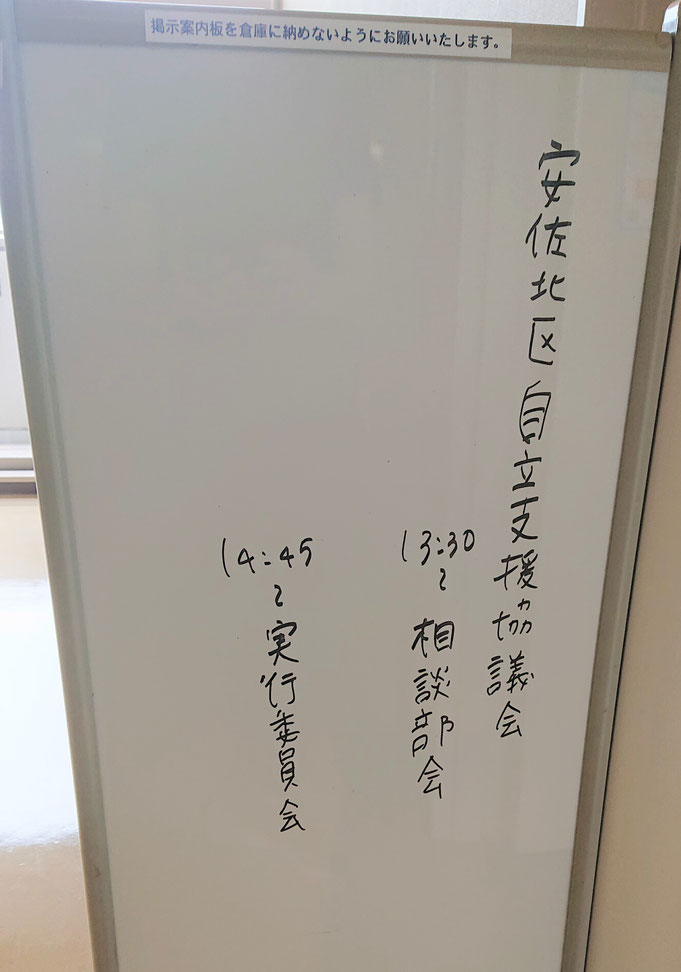 掲示案内板を倉庫に納めないようにお願いいたします。
安佐北区自立支援協議会
13:30～相談部会
14:45～実行委員会